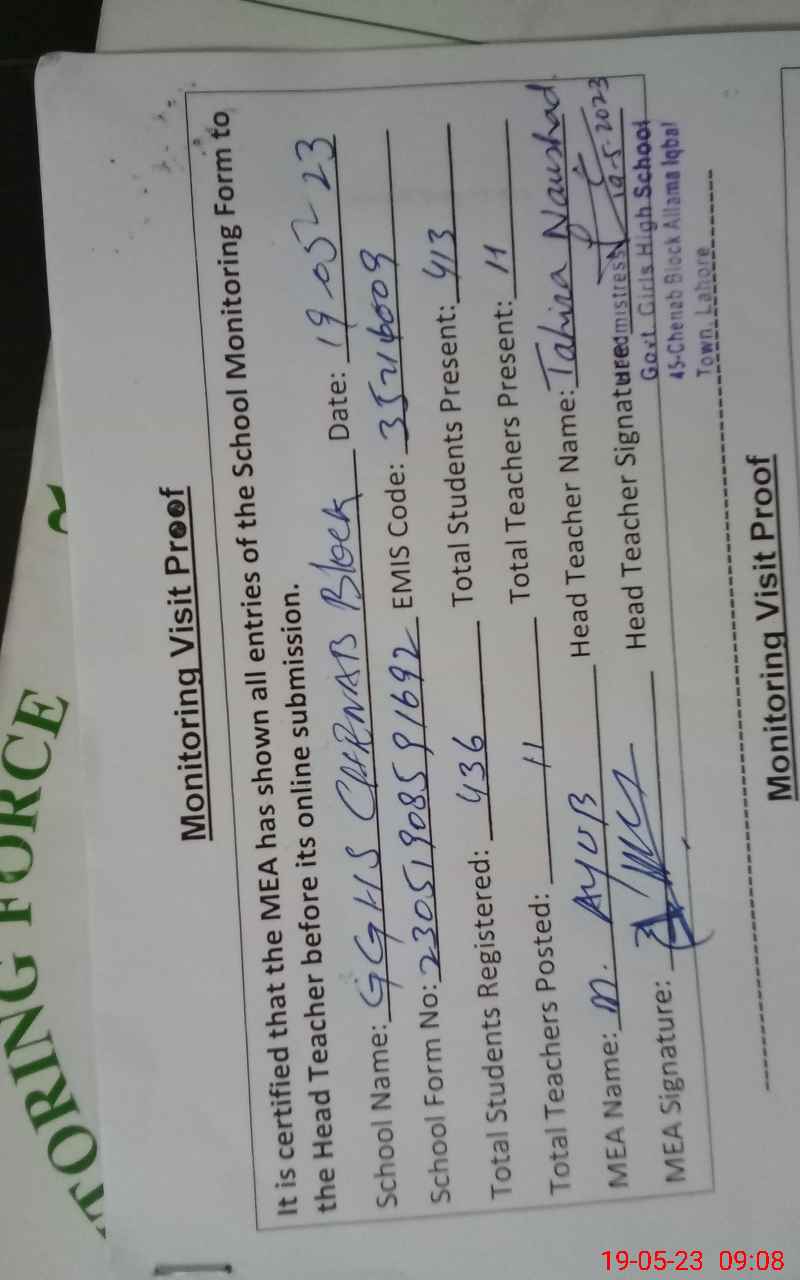 TORING FORCE
Monitoring Visit Proof
It is certified that the MEA has shown all entries of the School Monitoring Form to
the Head Teacher before its online submission.
School Name: GGHS CHENAB Block Date: 19-05-23
School Form No: 23051908591692 EMIS Code: 35216009
Total Students Registered: 436 Total Students Present: 413
Total Teachers Posted: 11 Total Teachers Present: 11
MEA Name: M. AYUB Head Teacher Name: Tahira Naushad
MEA Signature: Head Teacher Signature
mistress 19-5-2023
Govt. Girls High School
45-Chenab Block Allama Iqbal
Town, Lahore
Monitoring Visit Proof
19-05-23 09:08